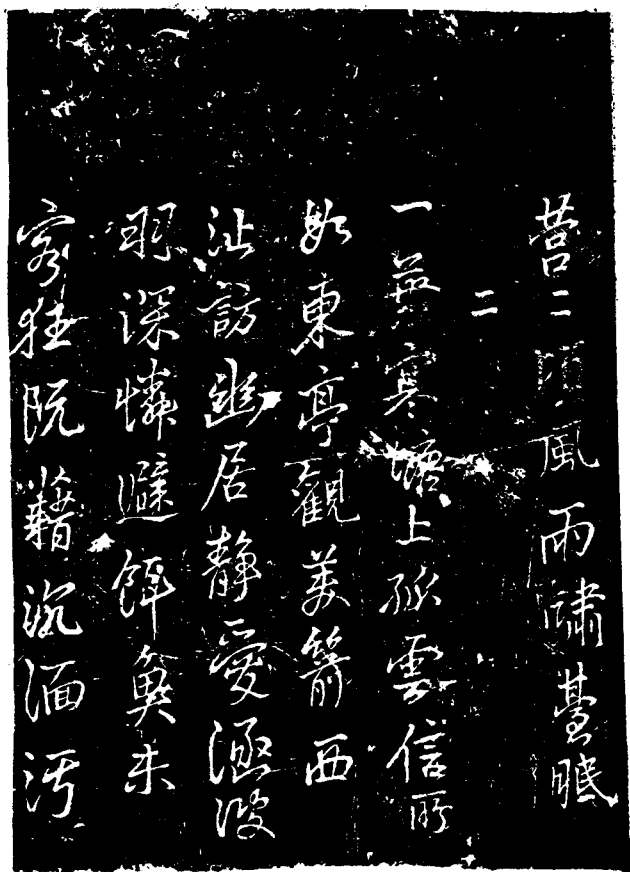 營二頃風雨嘯臺眠
二
一〓寒塘上孤雲信所
如東亭觀美箭西
沚訪幽居靜愛涵波
羽深憐避餌魚未
容狂阮藉沉湎污